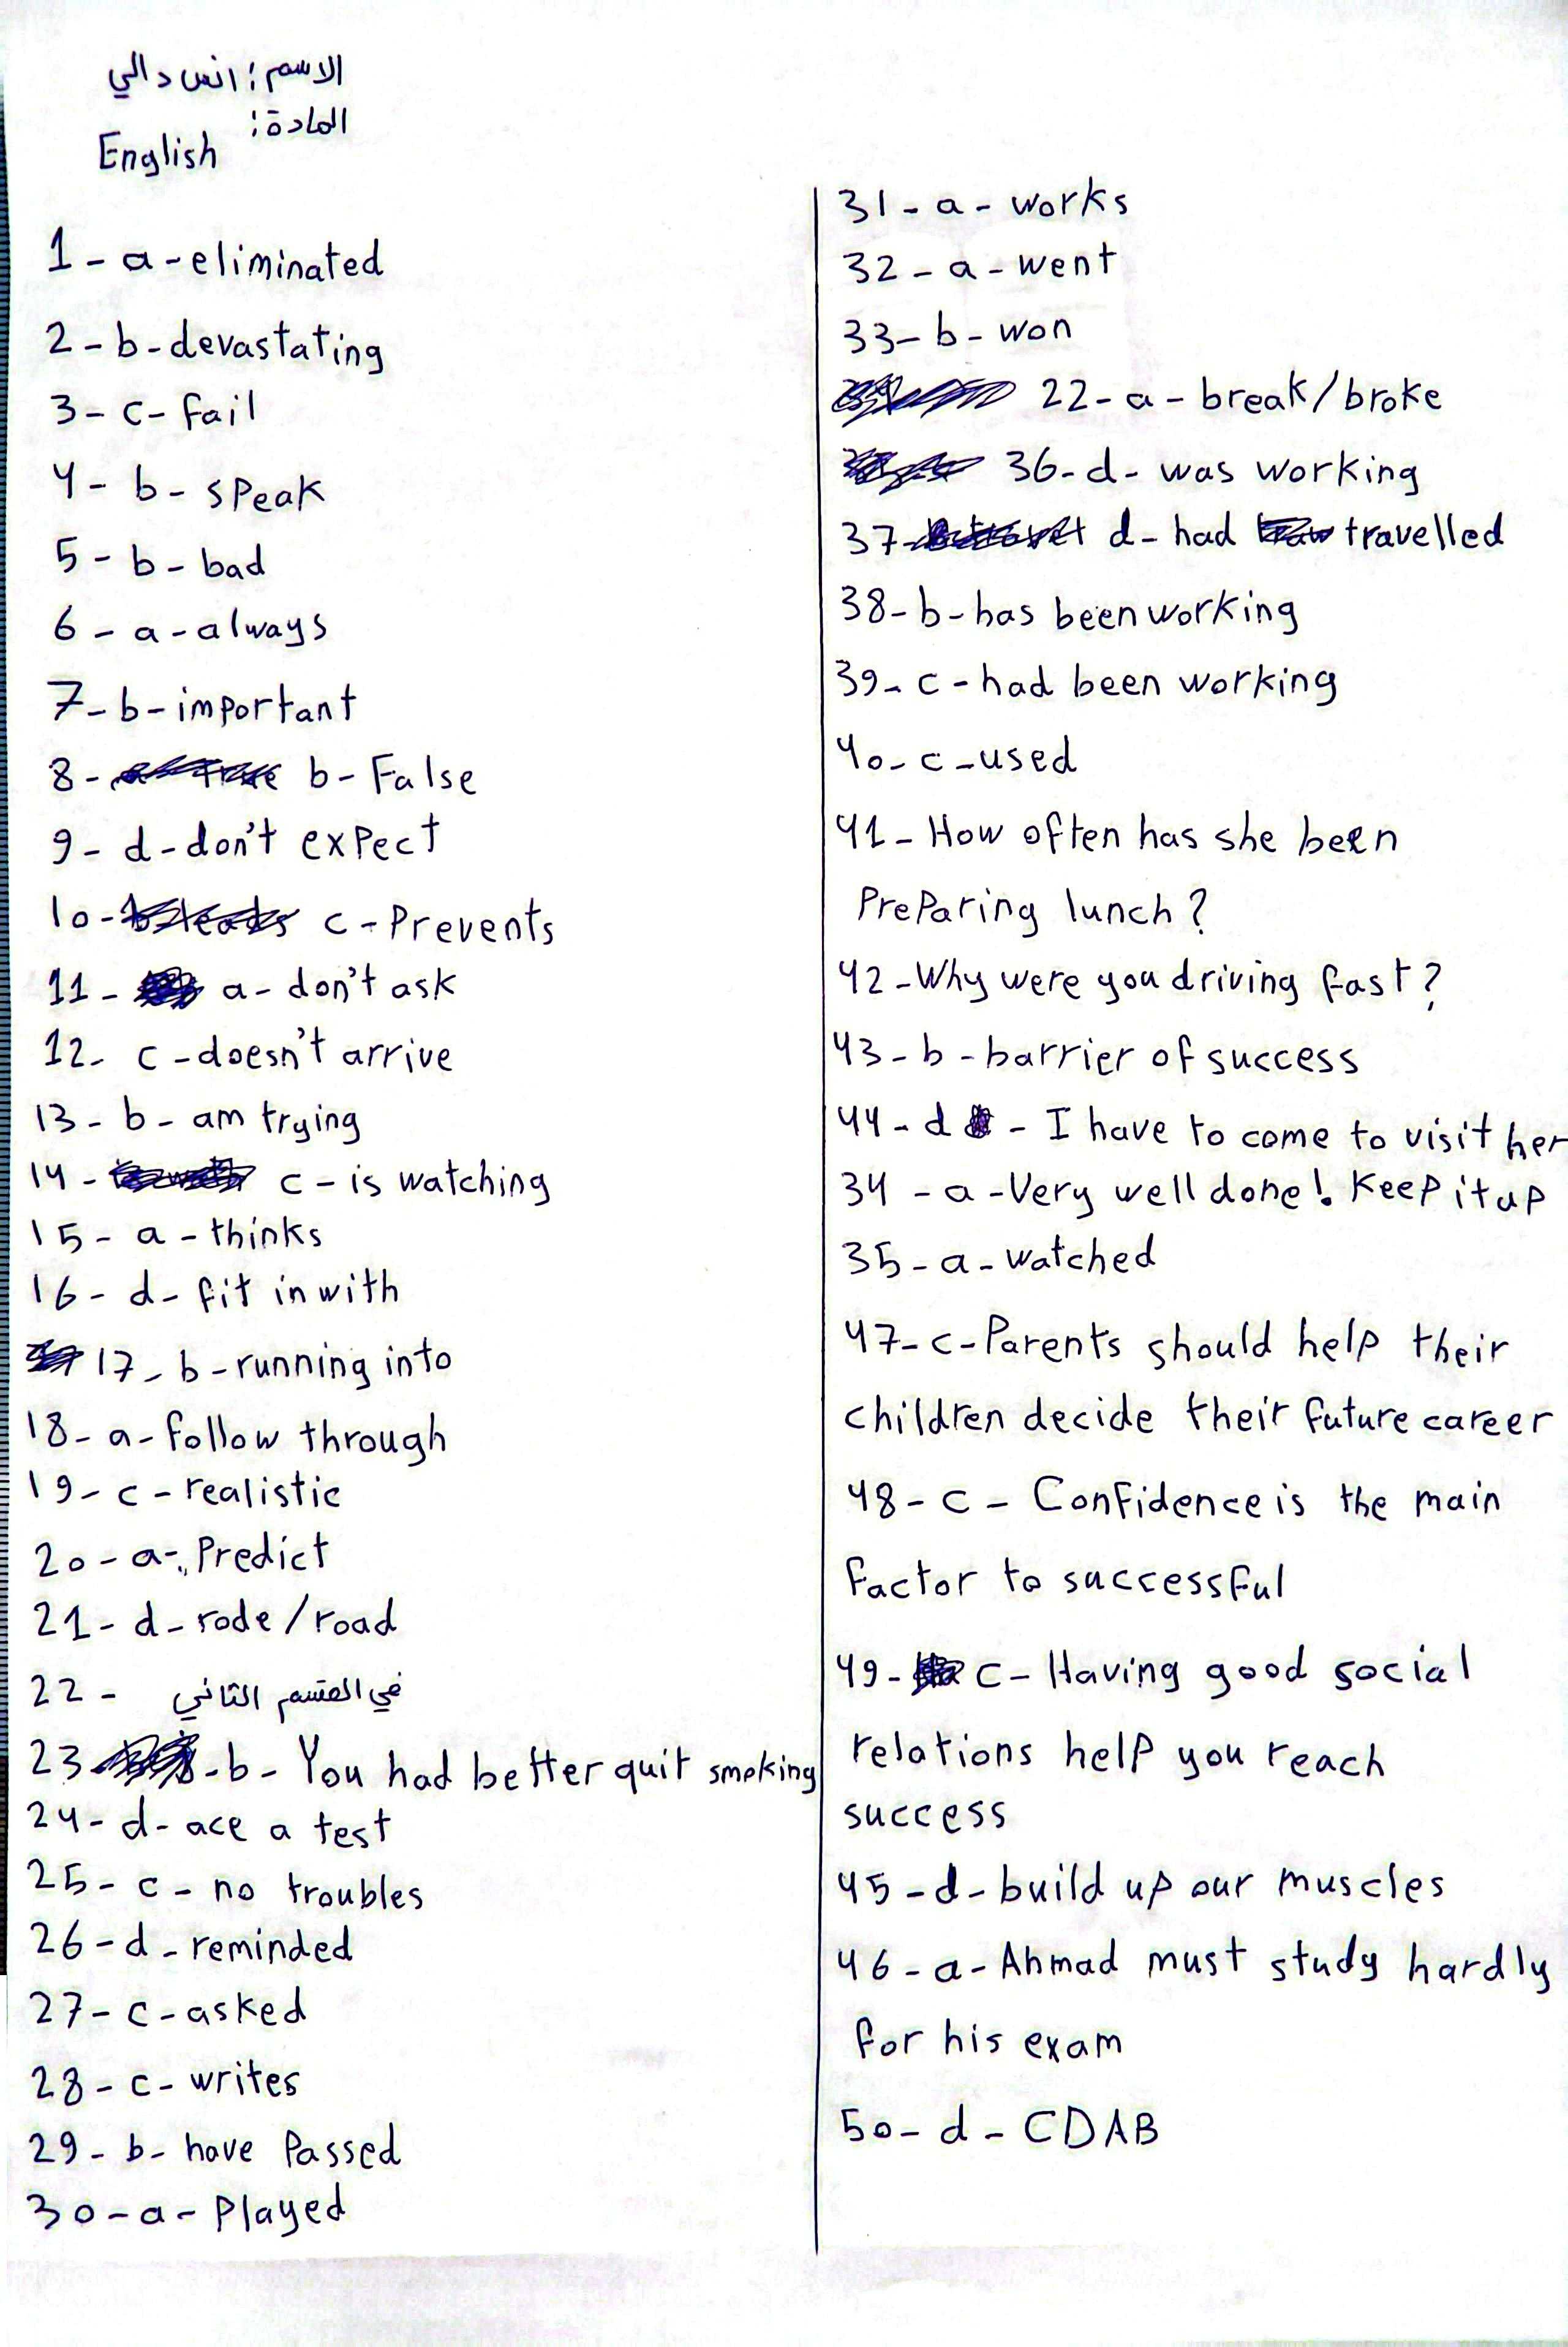 الاسم: انس دالي
المادة:
English
1 - a - eliminated
2 - b - devastating
3 - c - fail
4 - b - speak
5 - b - bad
6 - a - always
7 - b - important
8 - b - False
9 - d - don't expect
10 - c - Prevents
11 - a - don't ask
12 - c - doesn't arrive
13 - b - am trying
14 - c - is watching
15 - a - thinks
16 - d - fit in with
17 - b - running into
18 - a - follow through
19 - c - realistic
20 - a - Predict
21 - d - rode / road
22 - في القسم الثاني
23 - b - You had better quit smoking
24 - d - ace a test
25 - c - no troubles
26 - d - reminded
27 - c - asked
28 - c - writes
29 - b - have Passed
30 - a - Played
31 - a - works
32 - a - went
33 - b - won
22 - a - break / broke
36 - d - was working
37 - d - had travelled
38 - b - has been working
39 - c - had been working
40 - c - used
41 - How often has she been
PreParing lunch?
42 - Why were you driving fast?
43 - b - barrier of success
44 - d - I have to come to visit her
34 - a - Very well done! Keep it up
35 - a - watched
47 - c - Parents should help their
children decide their future career
48 - c - Confidence is the main
factor to successful
49 - c - Having good social
relations help you reach
success
45 - d - build up our muscles
46 - a - Ahmad must study hardly
for his exam
50 - d - CDAB